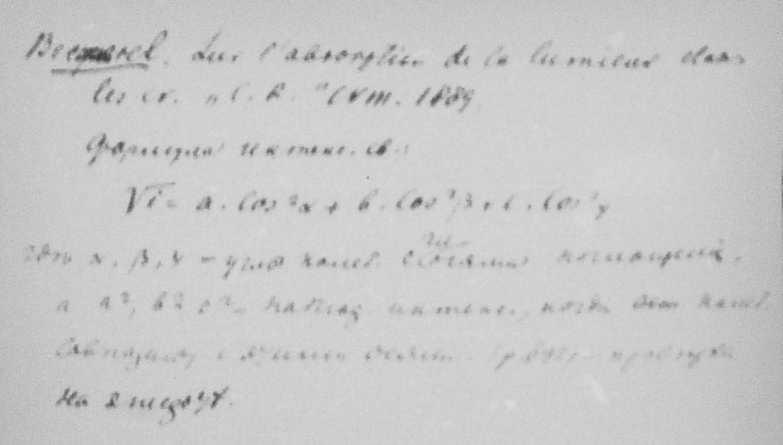 Becquerel. Sur l'absorption de la lumière dans
les cr. „C. R." CVIII. 1889.
Формула интенс. св.:
√i = a. cos²α + b. cos²β + c. cos²γ
где α, β, γ – углы колеб. с осями поглощения,
а a², b², c² – наблюд. интенс., когда колеб.
совпадают с этими осями. проверка
на эпидоте.